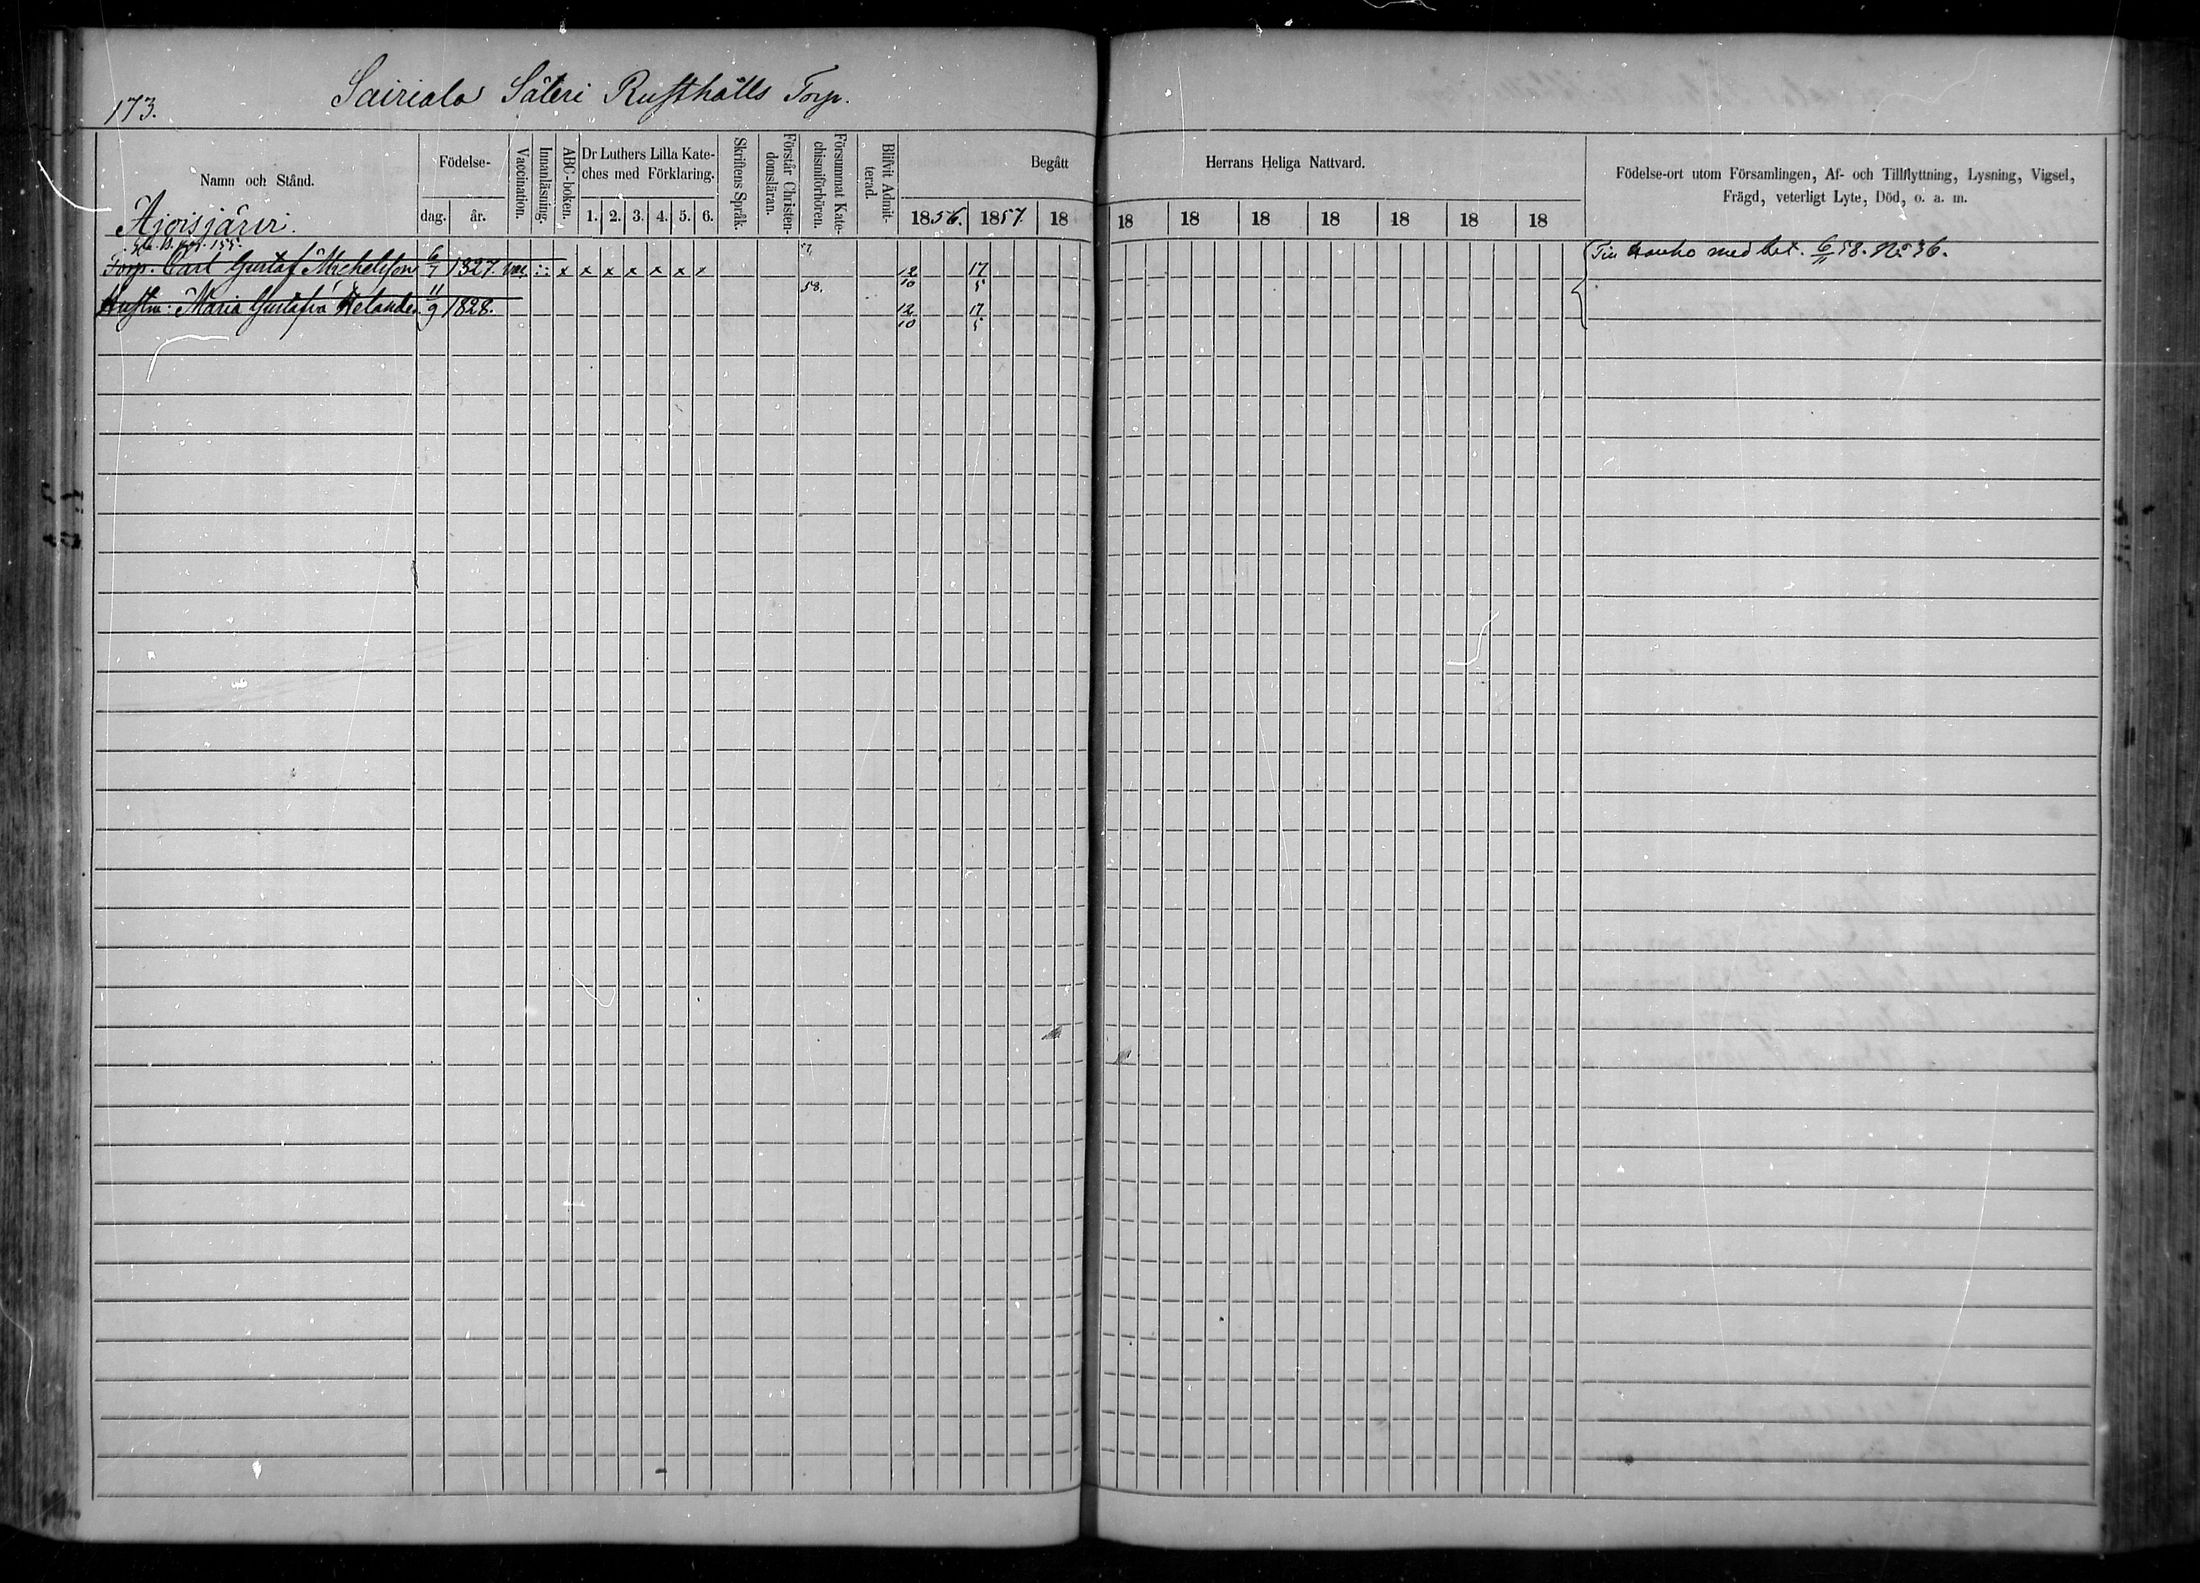 173.
Sairiala Säteri Rusthålls Torp.
Namn och Stånd.
Födelse-
dag. år.
Vaccination.
Innanläsning.
ABC-boken.
Dr Luthers Lilla Kate-
ches med Förklaring.
1. 2. 3. 4. 5. 6.
Skriftens Språk.
Förstår Christen-
domsläran.
Försummat Kate-
chismiförhören.
Blifvit Admit-
terad.
Begått Herrans Heliga Nattvard.
1856. 1857. 18 18 18 18 18 18 18 18
Födelse-ort utom Församlingen, Af- och Tillflyttning, Lysning, Vigsel,
Frägd, veterligt Lyte, Död, o. a. m.
Ajoisjärvi.
B. pag. 155.
Torp. Carl Gustaf Michelsson 6/7 1827. vac. x x x x x x x 57. 12/10 17/5 Till Hauho med bet. 6/11 58. No 36.
Hustru: Maria Gustafva Helander 11/9 1828. 58. 12/10 17/5